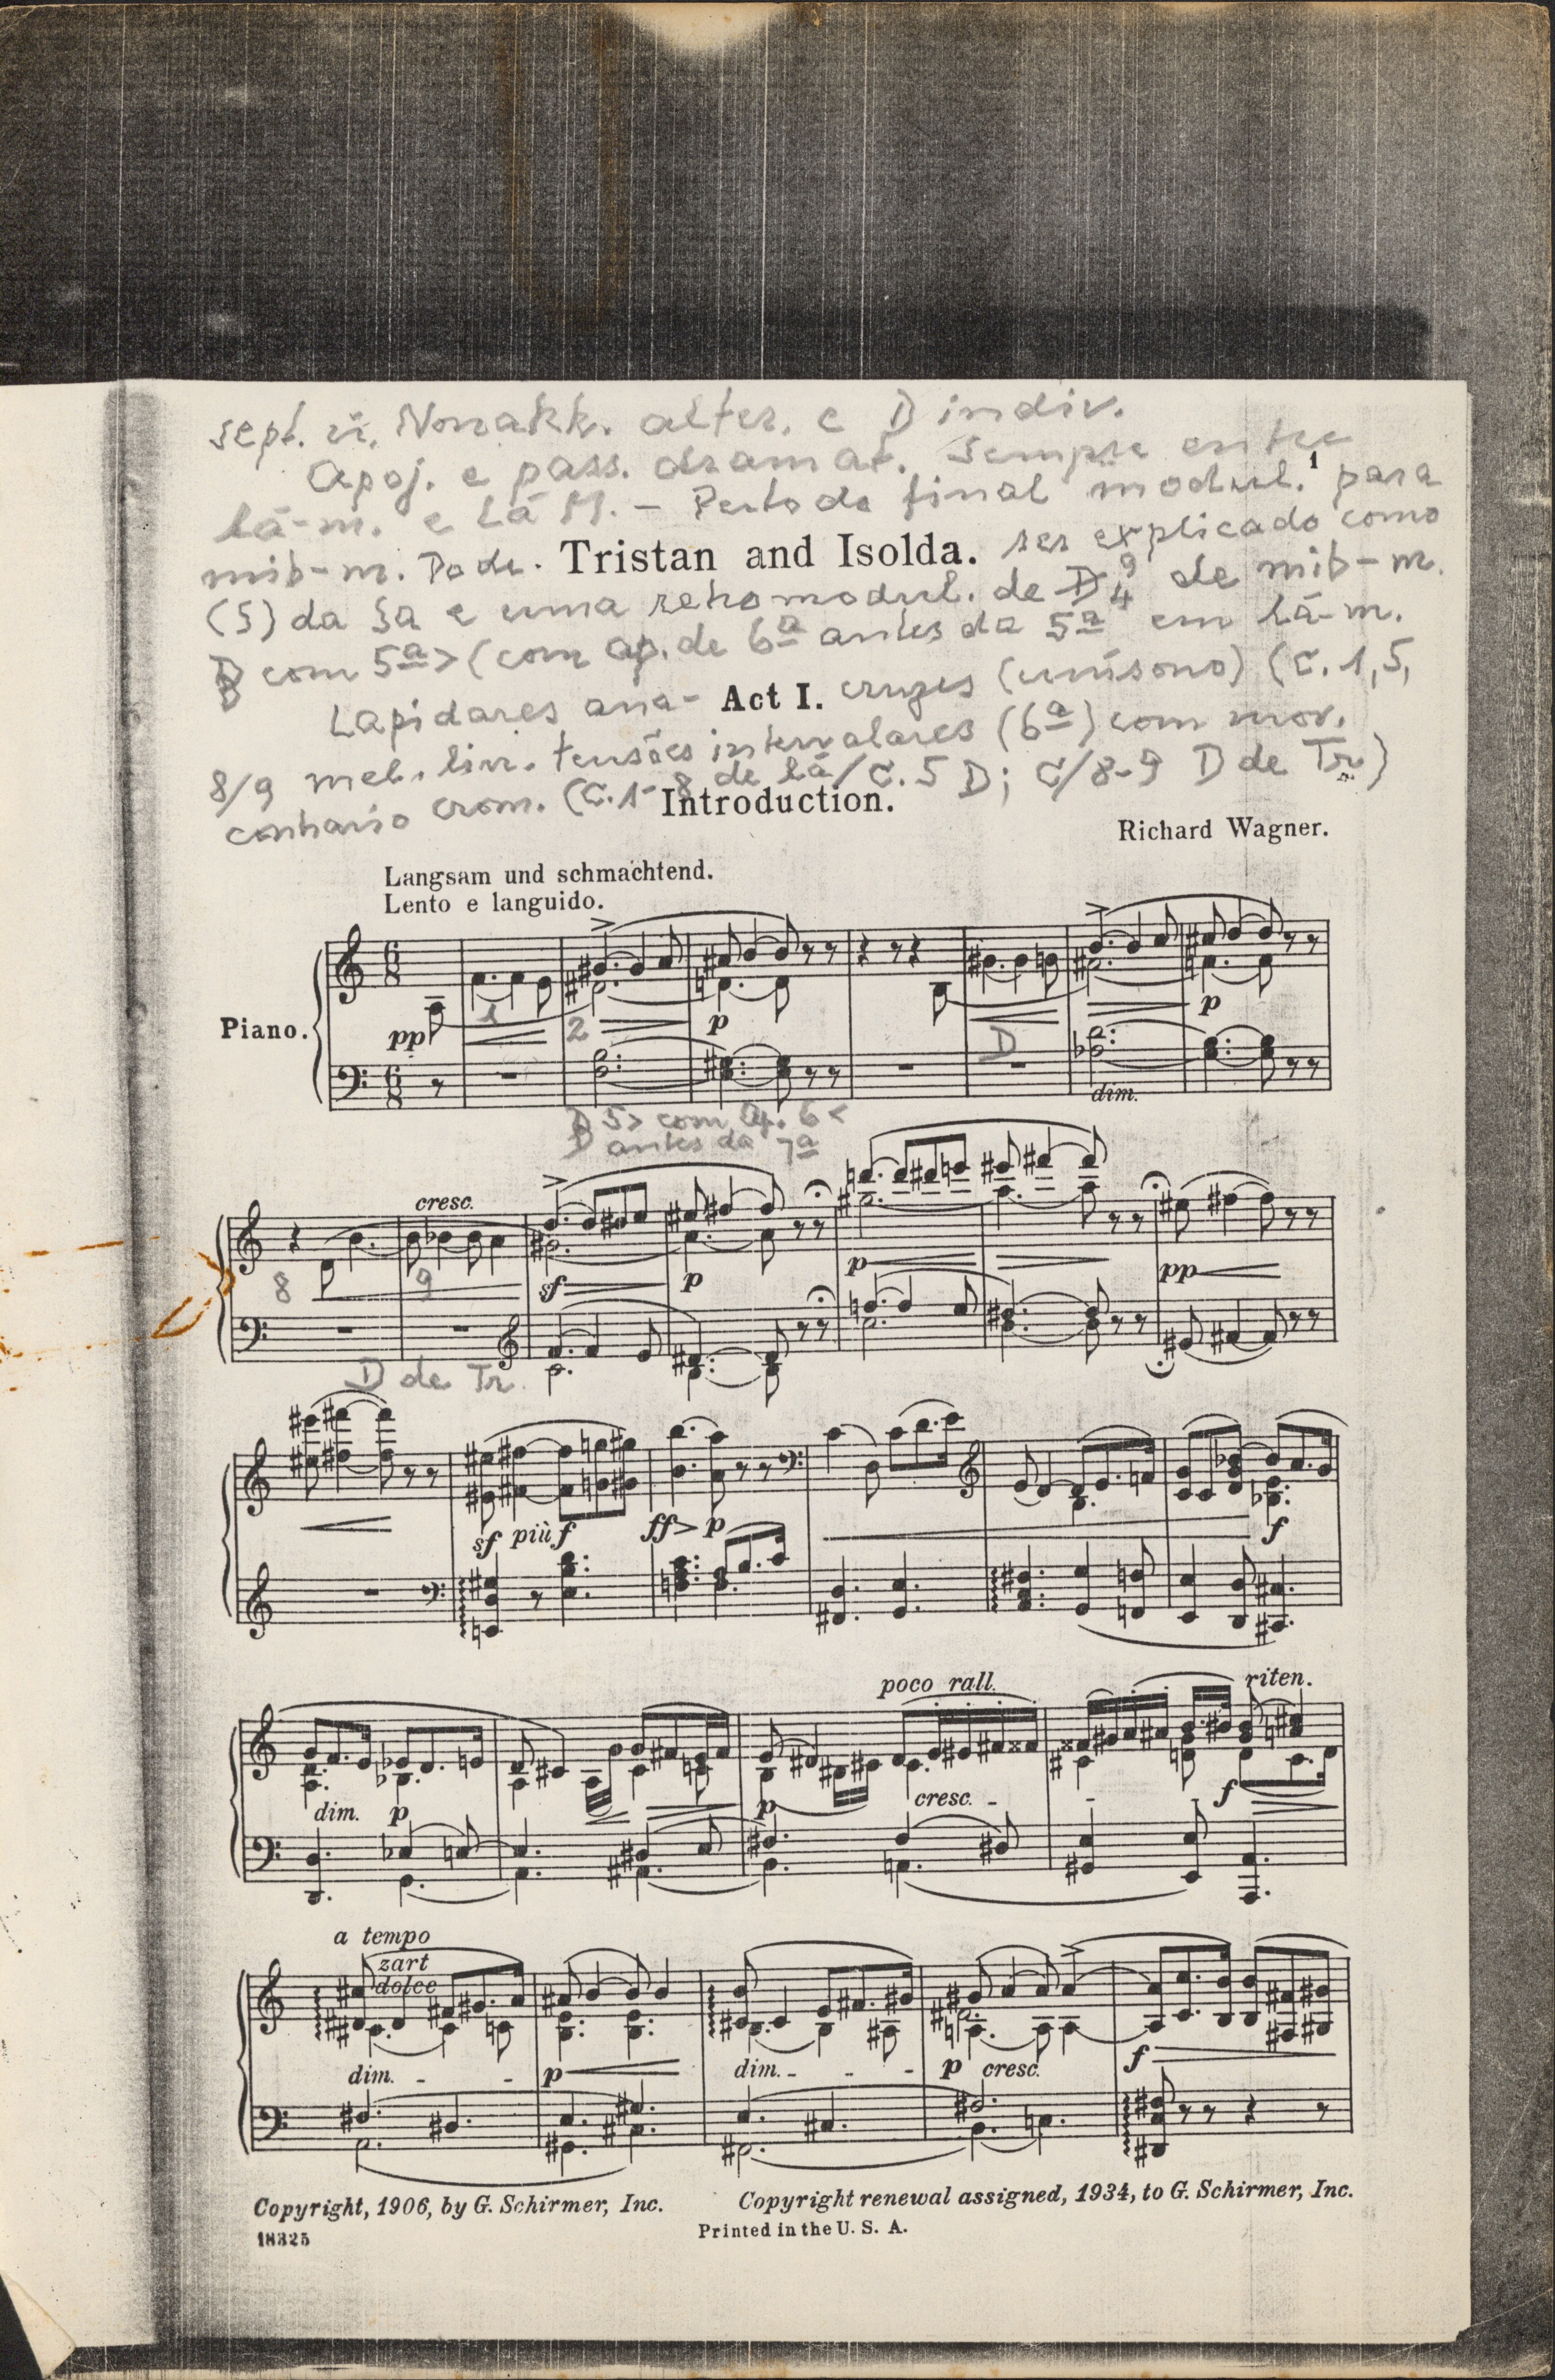 sept. Nonakk. alter. e D indiv.
Apoj. e pass. dramat. Sempre entre
1
lá-m. e Lá M. – Perto do final modul. para
mib-m. Pode. Tristan and Isolda. ser explicado como
(S) da Sa e uma retromodul. de D 9 4 de mib-m.
D com 5ª> (com ap. de 6ª antes da 5ª em lá-m.
Lapidares ana- Act I. cruzes (uníssono) (C. 1, 5,
8/9 mel. lin. tensões intervalares (6ª) com mov.
contrario crom. (C. 1- 8 de lá/C. 5 D; C/8-9 D de Tr)
Introduction.
Richard Wagner.
Langsam und schmachtend.
Lento e languido.
Piano.
pp 1 2 p D p
dim.
D 5> com Ap. 6<
antes da 7ª
cresc.
8 9 sf p p pp
D de Tr.
sf più f ff p f
poco rall. riten.
dim. p p cresc. - - - f
a tempo
zart
dolce
dim. - - p dim. - - - p cresc. f
Copyright, 1906, by G. Schirmer, Inc. Copyright renewal assigned, 1934, to G. Schirmer, Inc.
18325 Printed in the U. S. A.